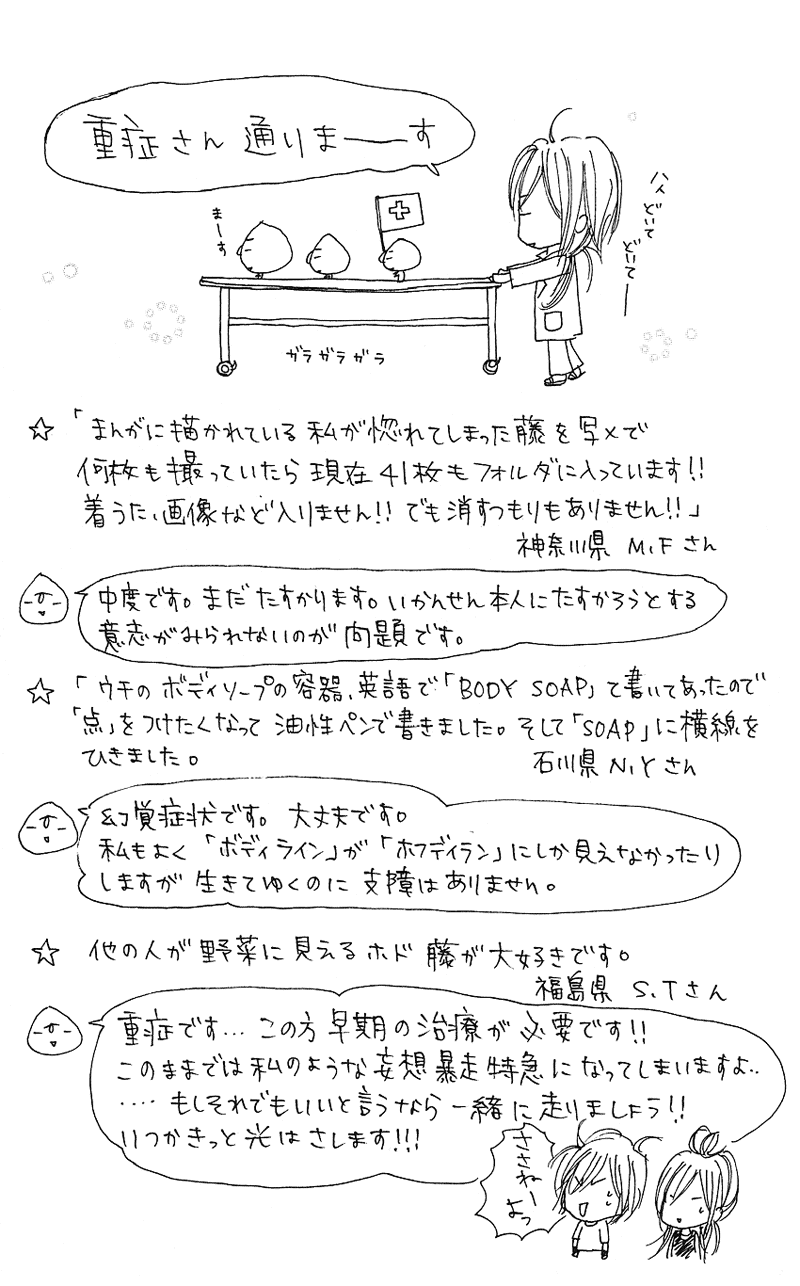 重症さん 通りまーーす
ハイ どいて どいてー
まーす
ガラガラガラ
☆「まんがに描かれている 私が惚れてしまった藤を写メで
何枚も撮っていたら 現在41枚もフォルダに入っています!!
着うた、画像など入りません!! でも消すつもりもありません!!」
神奈川県 M.Fさん
中度です。まだたすかります。いかんせん本人にたすかろうとする
意志がみられないのが問題です。
☆「ウチのボディソープの容器、英語で「BODY SOAP」て書いてあったので
「点」をつけたくなって 油性ペンで書きました。そして「SOAP」に横線を
ひきました。
石川県N.Yさん
幻覚症状です。大丈夫です。
私もよく「ボディライン」が「ホフディラン」にしか見えなかったり
しますが 生きてゆくのに 支障はありません。
☆ 他の人が野菜に見えるホド 藤が大好きです。
福島県 S.Tさん
重症です… この方 早期の治療が必要です!!
このままでは私のような妄想暴走特急になってしまいますよ..
‥‥もしそれでもいいと言うなら一緒に走りましょう!!
いつかきっと光はさします!!!
ささねー
よっ